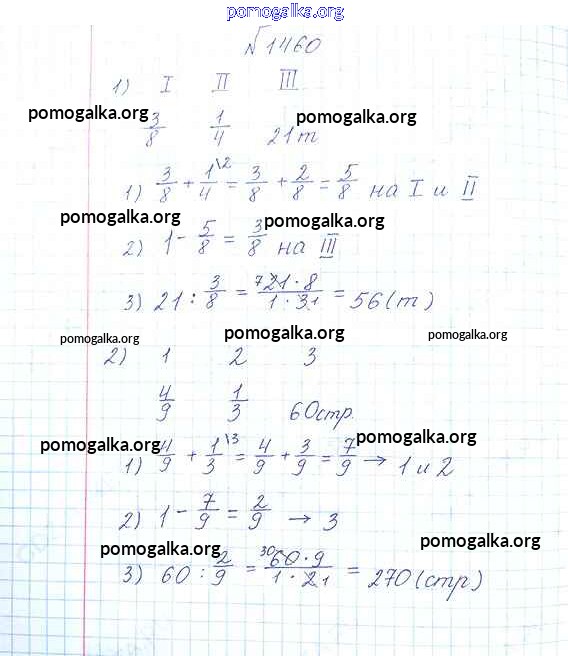 pomogalka.org
№1460
1) I II III
pomogalka.org pomogalka.org
3/8 1/4 21 т
1) 3/8 + 1\2/4 = 3/8 + 2/8 = 5/8 на I и II
pomogalka.org pomogalka.org
2) 1 - 5/8 = 3/8 на III
3) 21 : 3/8 = 7 21 · 8 / 1 · 3 1 = 56 (т)
pomogalka.org pomogalka.org pomogalka.org
2) 1 2 3
4/9 1/3 60 стр.
pomogalka.org pomogalka.org
1) 4/9 + 1\3/3 = 4/9 + 3/9 = 7/9 → 1 и 2
2) 1 - 7/9 = 2/9 → 3
pomogalka.org pomogalka.org
3) 60 : 2/9 = 30 60 · 9 / 1 · 2 1 = 270 (стр)